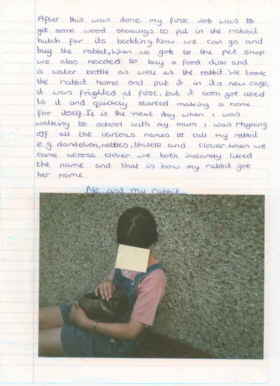 After this was done my first job was to
get some wood shavings to put in the rabbit
hutch for its bedding. Now we can go and
buy the rabbit, when we got to the pet shop
we also needed to buy a food dish and
a water bottle as well as the rabbit. We took
the rabbit home and put it in its new cage,
it was frighted at first, but it soon got used
to it and quickly started making a home
for itself. It is the next day when I was
walking to school with my mum I was
off all the various names to call my rabbit
e.g. dandelion, nettles, thistle and clover. When we
came across clover we both instantly liked
the name and that is how my rabbit got
her name.
Me and my rabbit